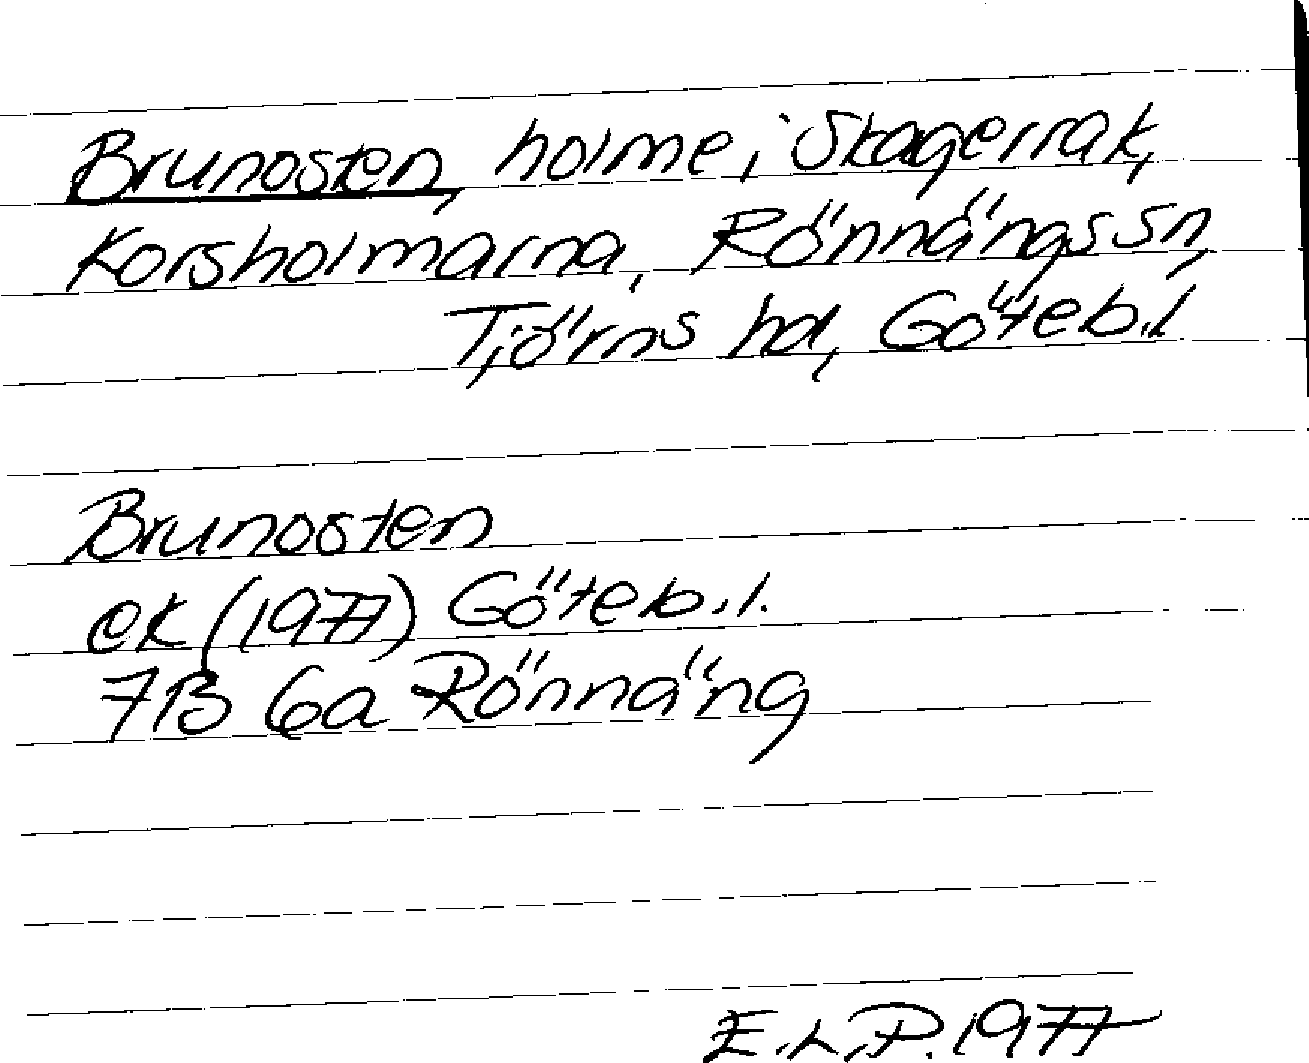 Brunosten, holme i Skagerrak,
Korsholmarna, Rönnängs sn,
Tjörns hd, Göteb.l
Brunosten
ek (1977) Göteb.l.
7B 6a Rönnäng
E.L.P. 1977